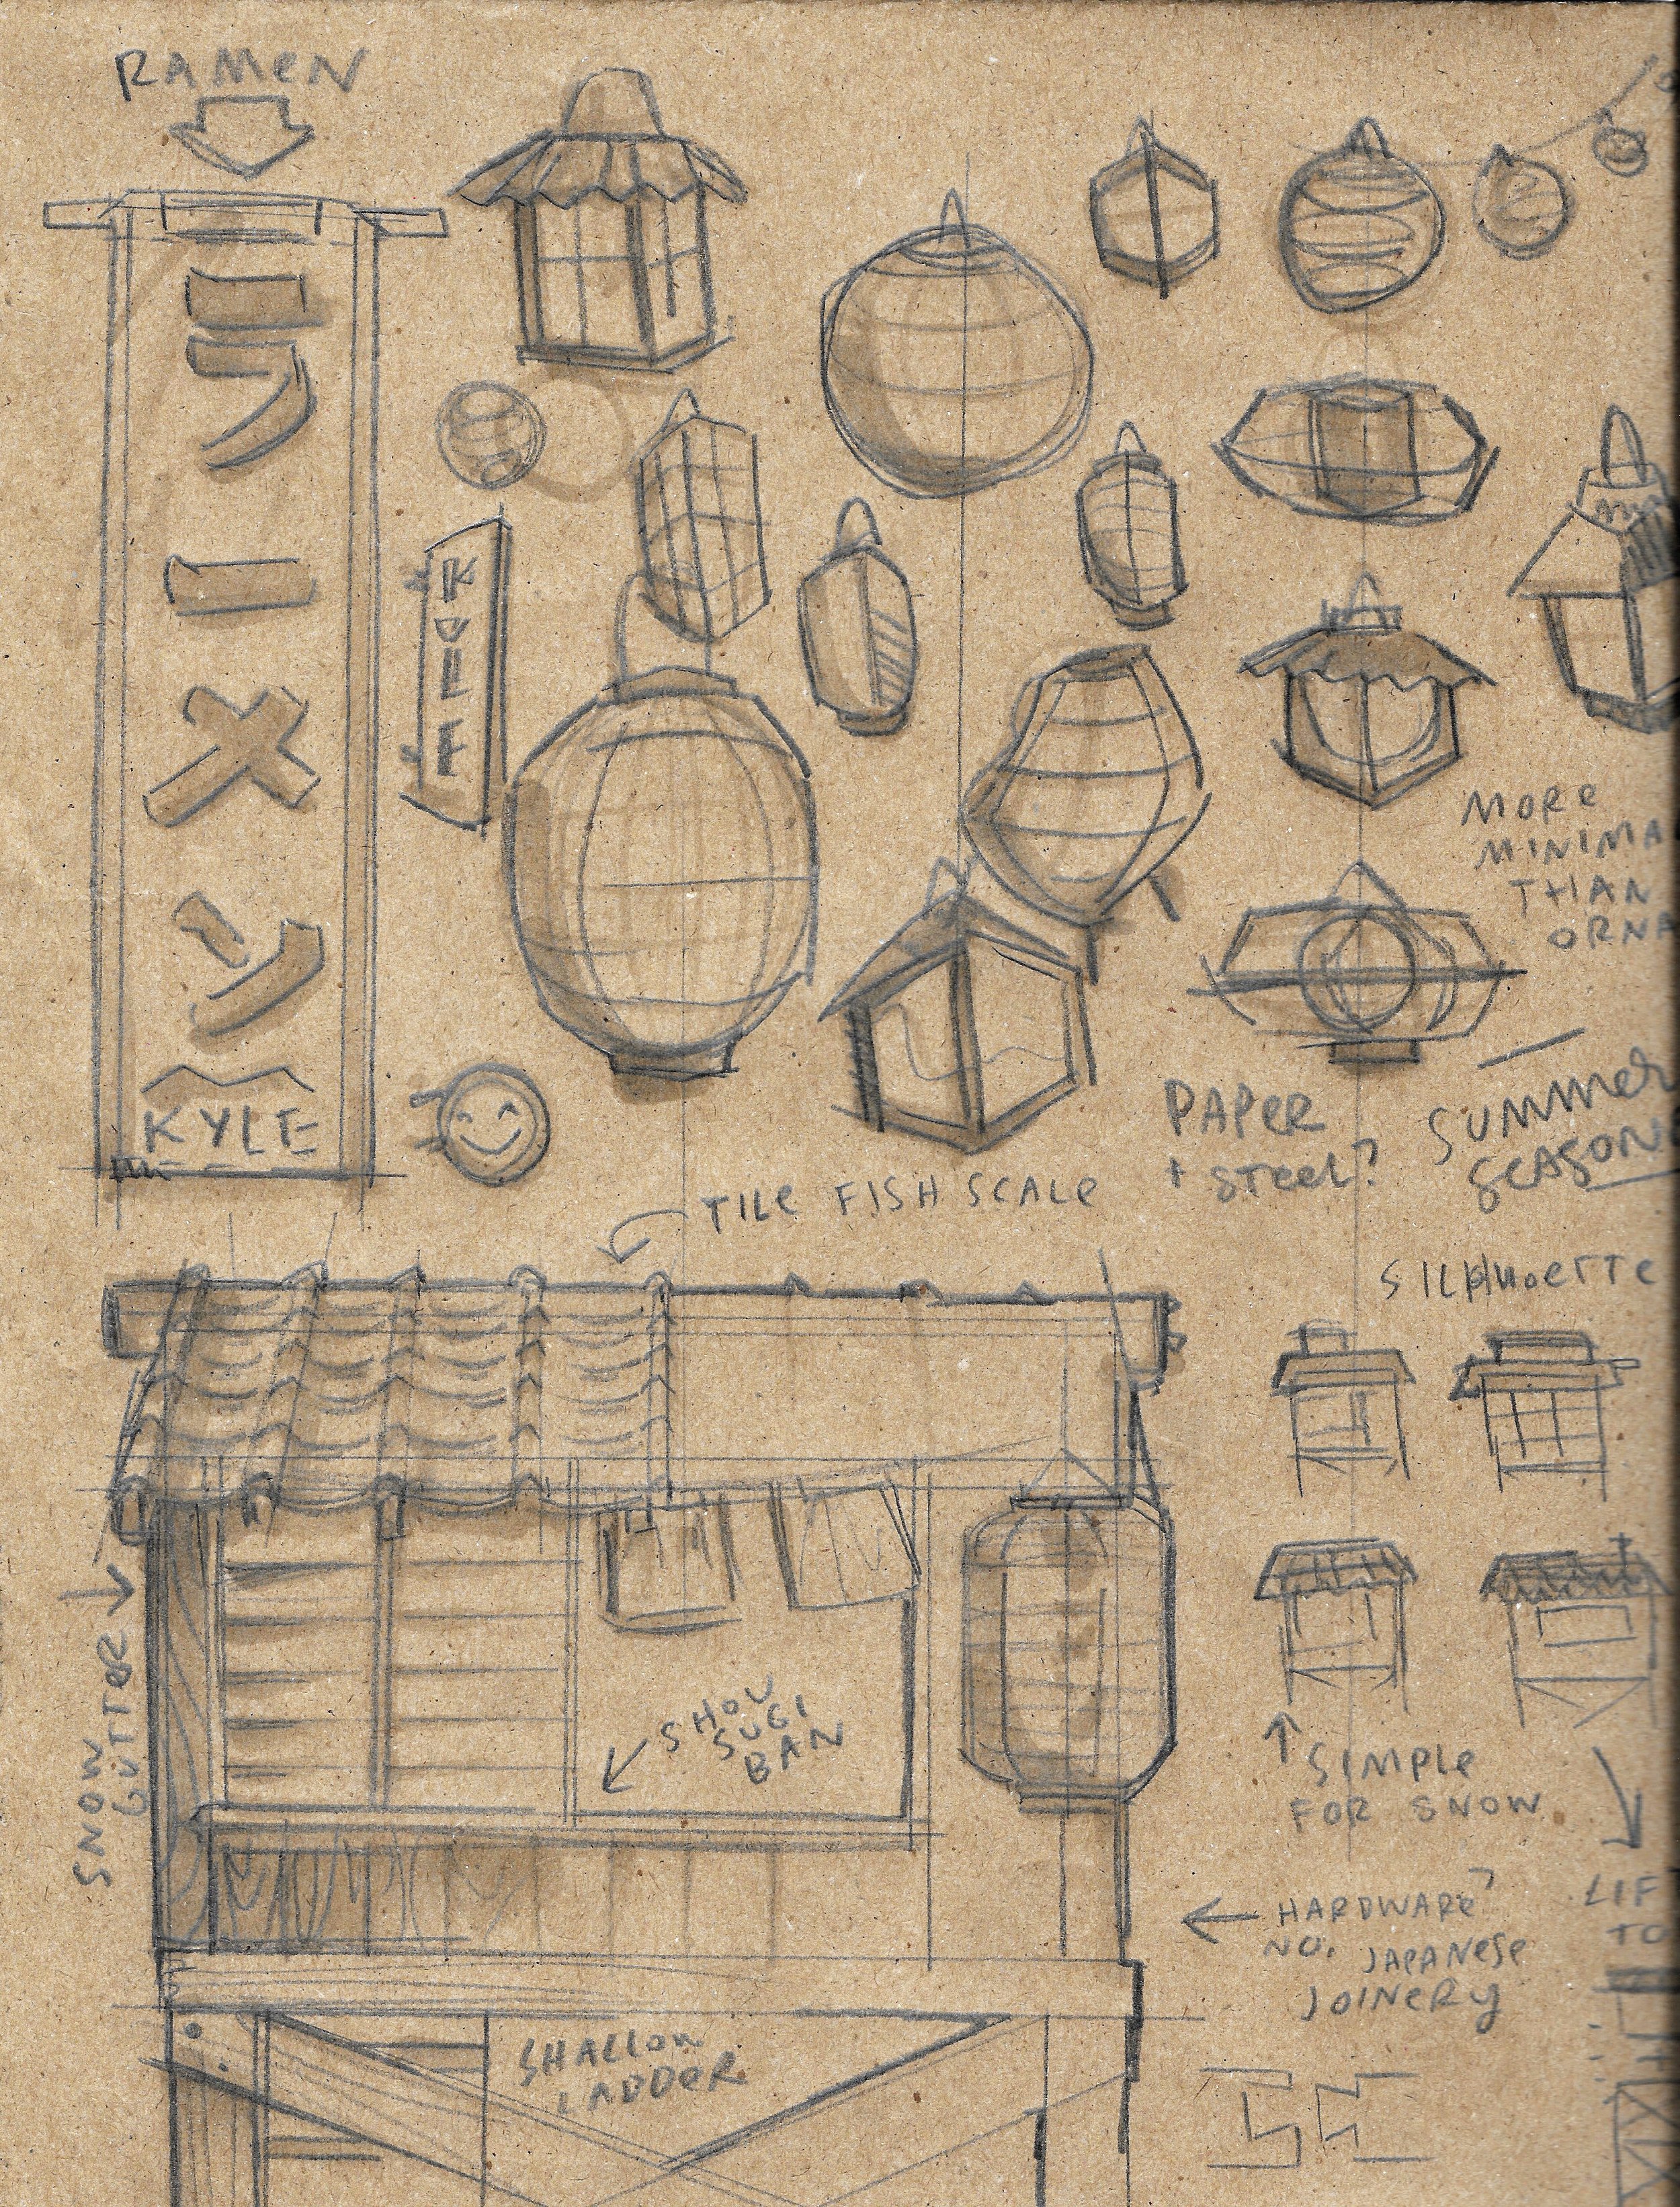 RAMEN
ラーメン
KYLE
MORE
MINIMA
THAN
ORNA
PAPER
+ STEEL?
SUMMER
SEASON
TILE FISH SCALE
SILHUOETTE
SNOW
GUTTER
SHOU
SUGI
BAN
SIMPLE
FOR SNOW
HARDWARE?
NO. JAPANESE
JOINERY
LIF
TO
SHALLOW
LADDER